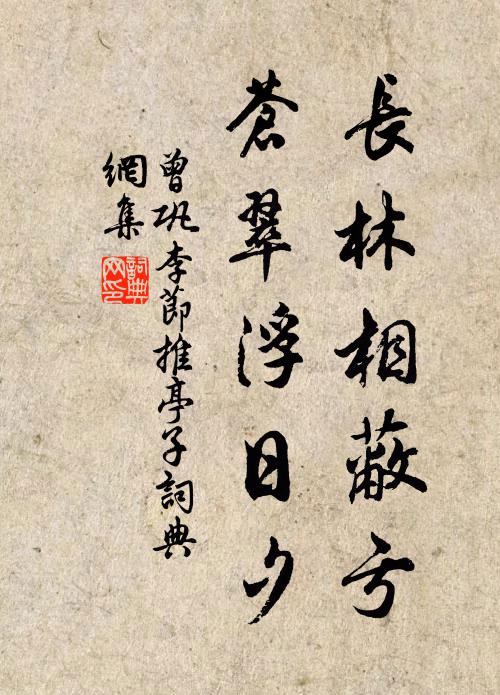 長林相蔽亏
蒼翠浮日夕
曾巩李節推亭子詞典
網集
詞典网印